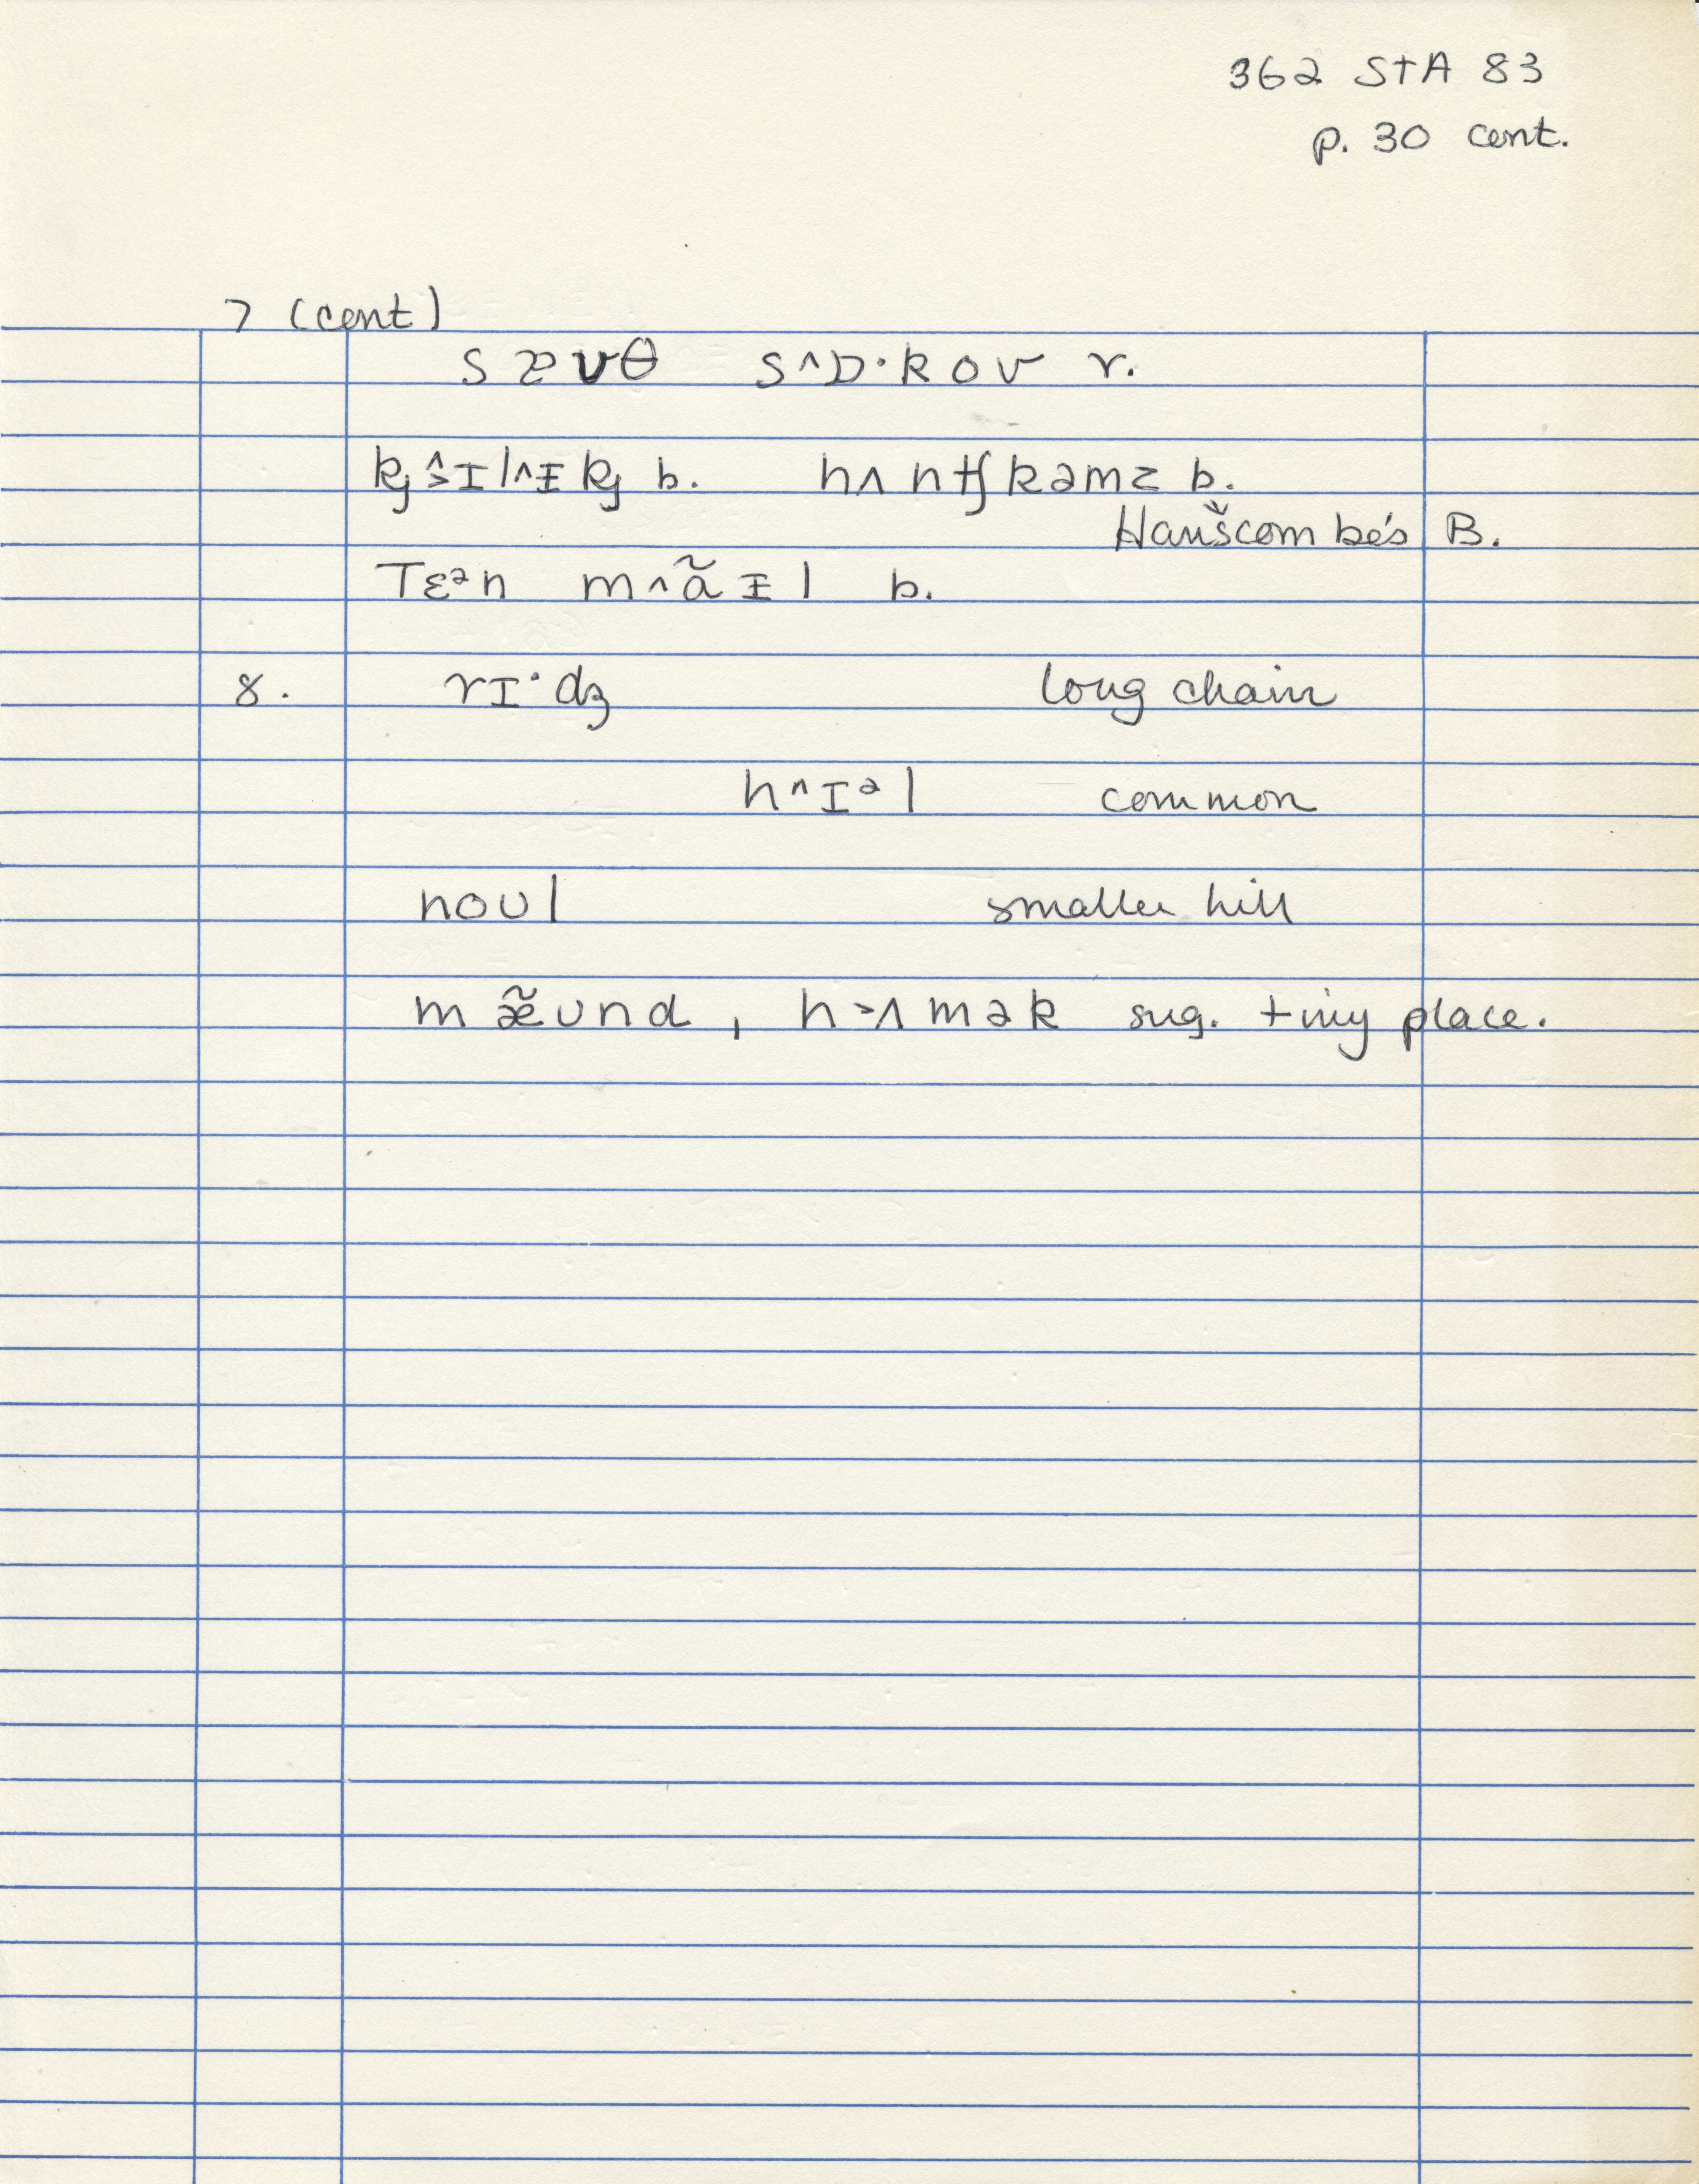 362 STA 83
p. 30 cont.
7 (cont)
s æ ʊ θ s ^ ɒ · k o ʊ r.
h ʌ n tʃ k ə m z b.
B.
T ɛ ᵊ n m ^ ã ɪ l b.
8. r ɪ · dʒ long chain
h ^ ɪ ᵊ l common
n o ʊ l smaller hill
m æ̃ ʊ n d , h > ʌ m ə k sug. tiny place.